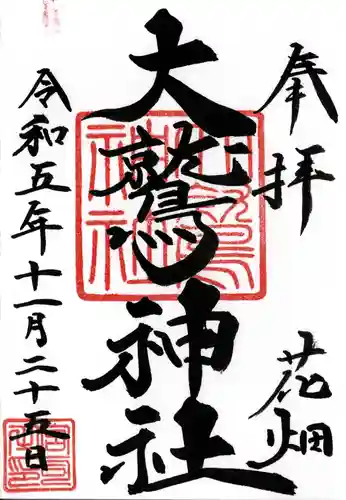 奉拝
花畑
大鷲神社
令和五年十一月二十五日